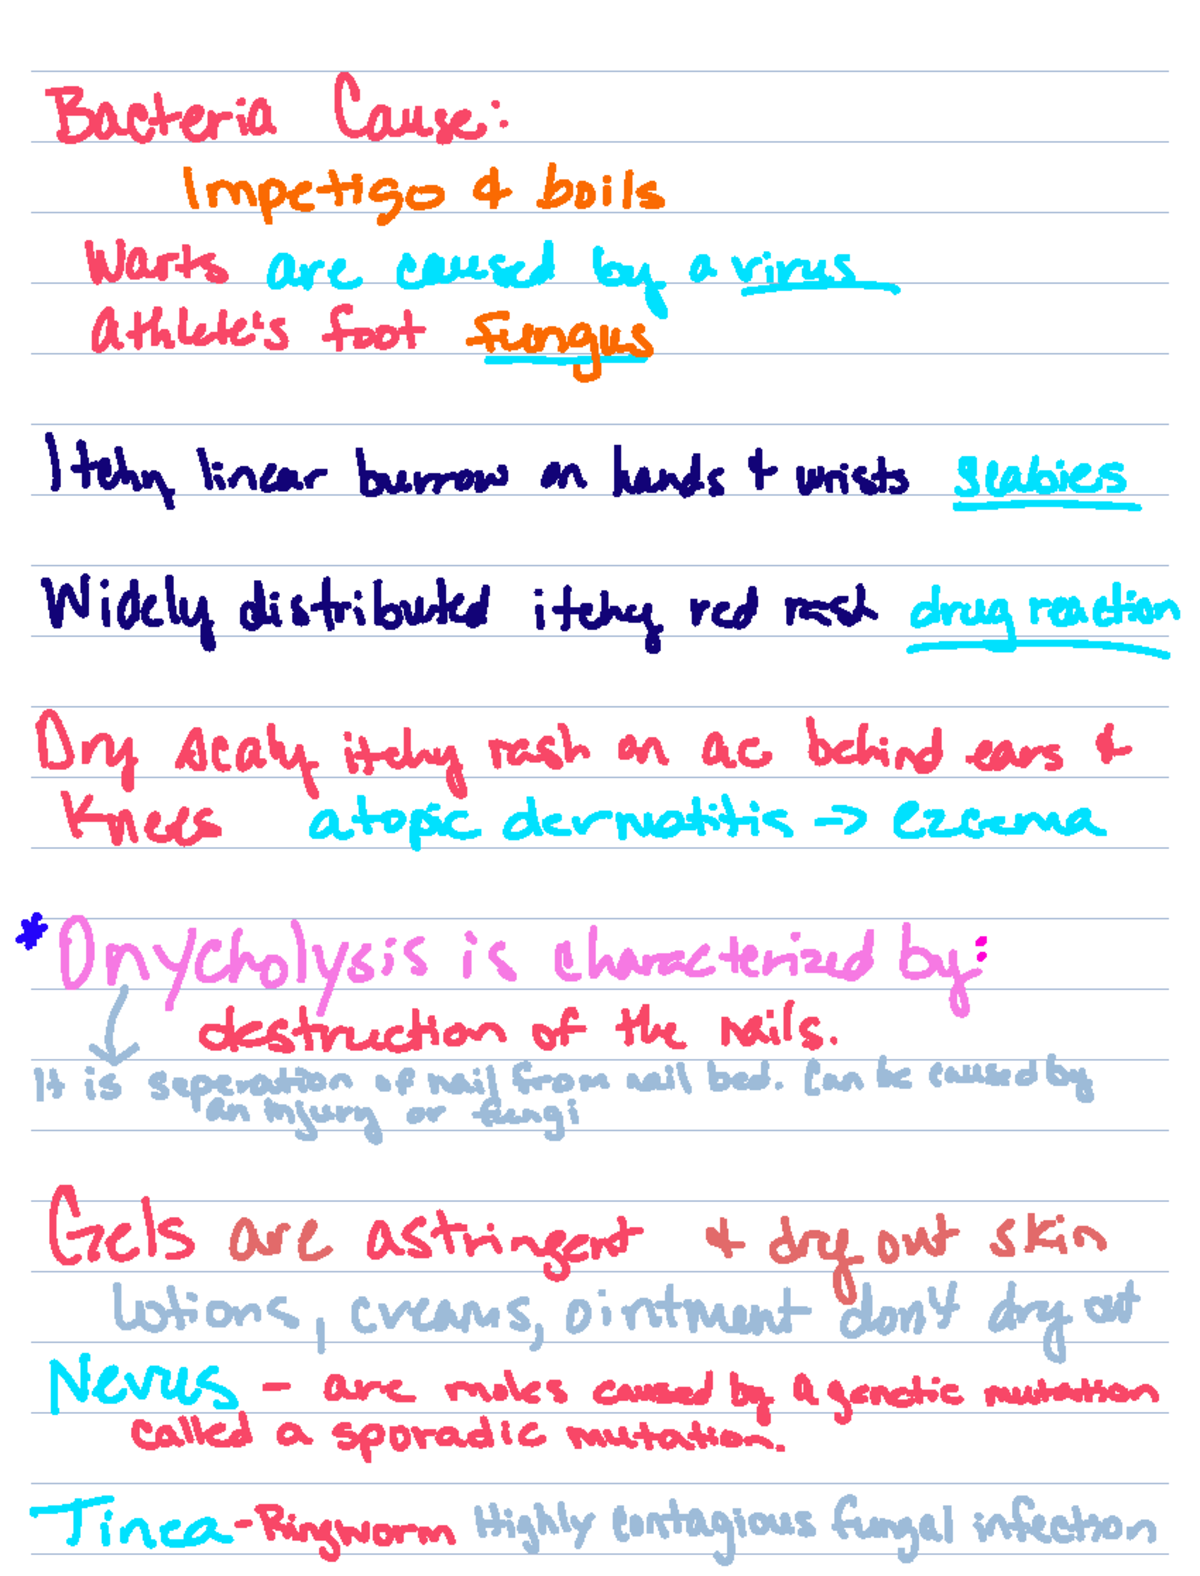 Bacteria Cause:
Impetigo & boils
Warts are caused by a virus
Athlete's foot fungus
Itchy linear burrow on hands & wrists scabies
Widely distributed itchy red rash drug reaction
Dry scaly itchy rash on ac behind ears &
Knees atopic dermatitis → ezcema
* Onycholysis is characterized by:
destruction of the nails.
It is seperation of nail from nail bed. Can be caused by
an injury or fungi
Gels are astringent & dry out skin
lotions, creams, ointment don't dry out
Nevus - are moles caused by a genetic mutation
called a sporadic mutation.
Tinea - Ringworm Highly contagious fungal infection